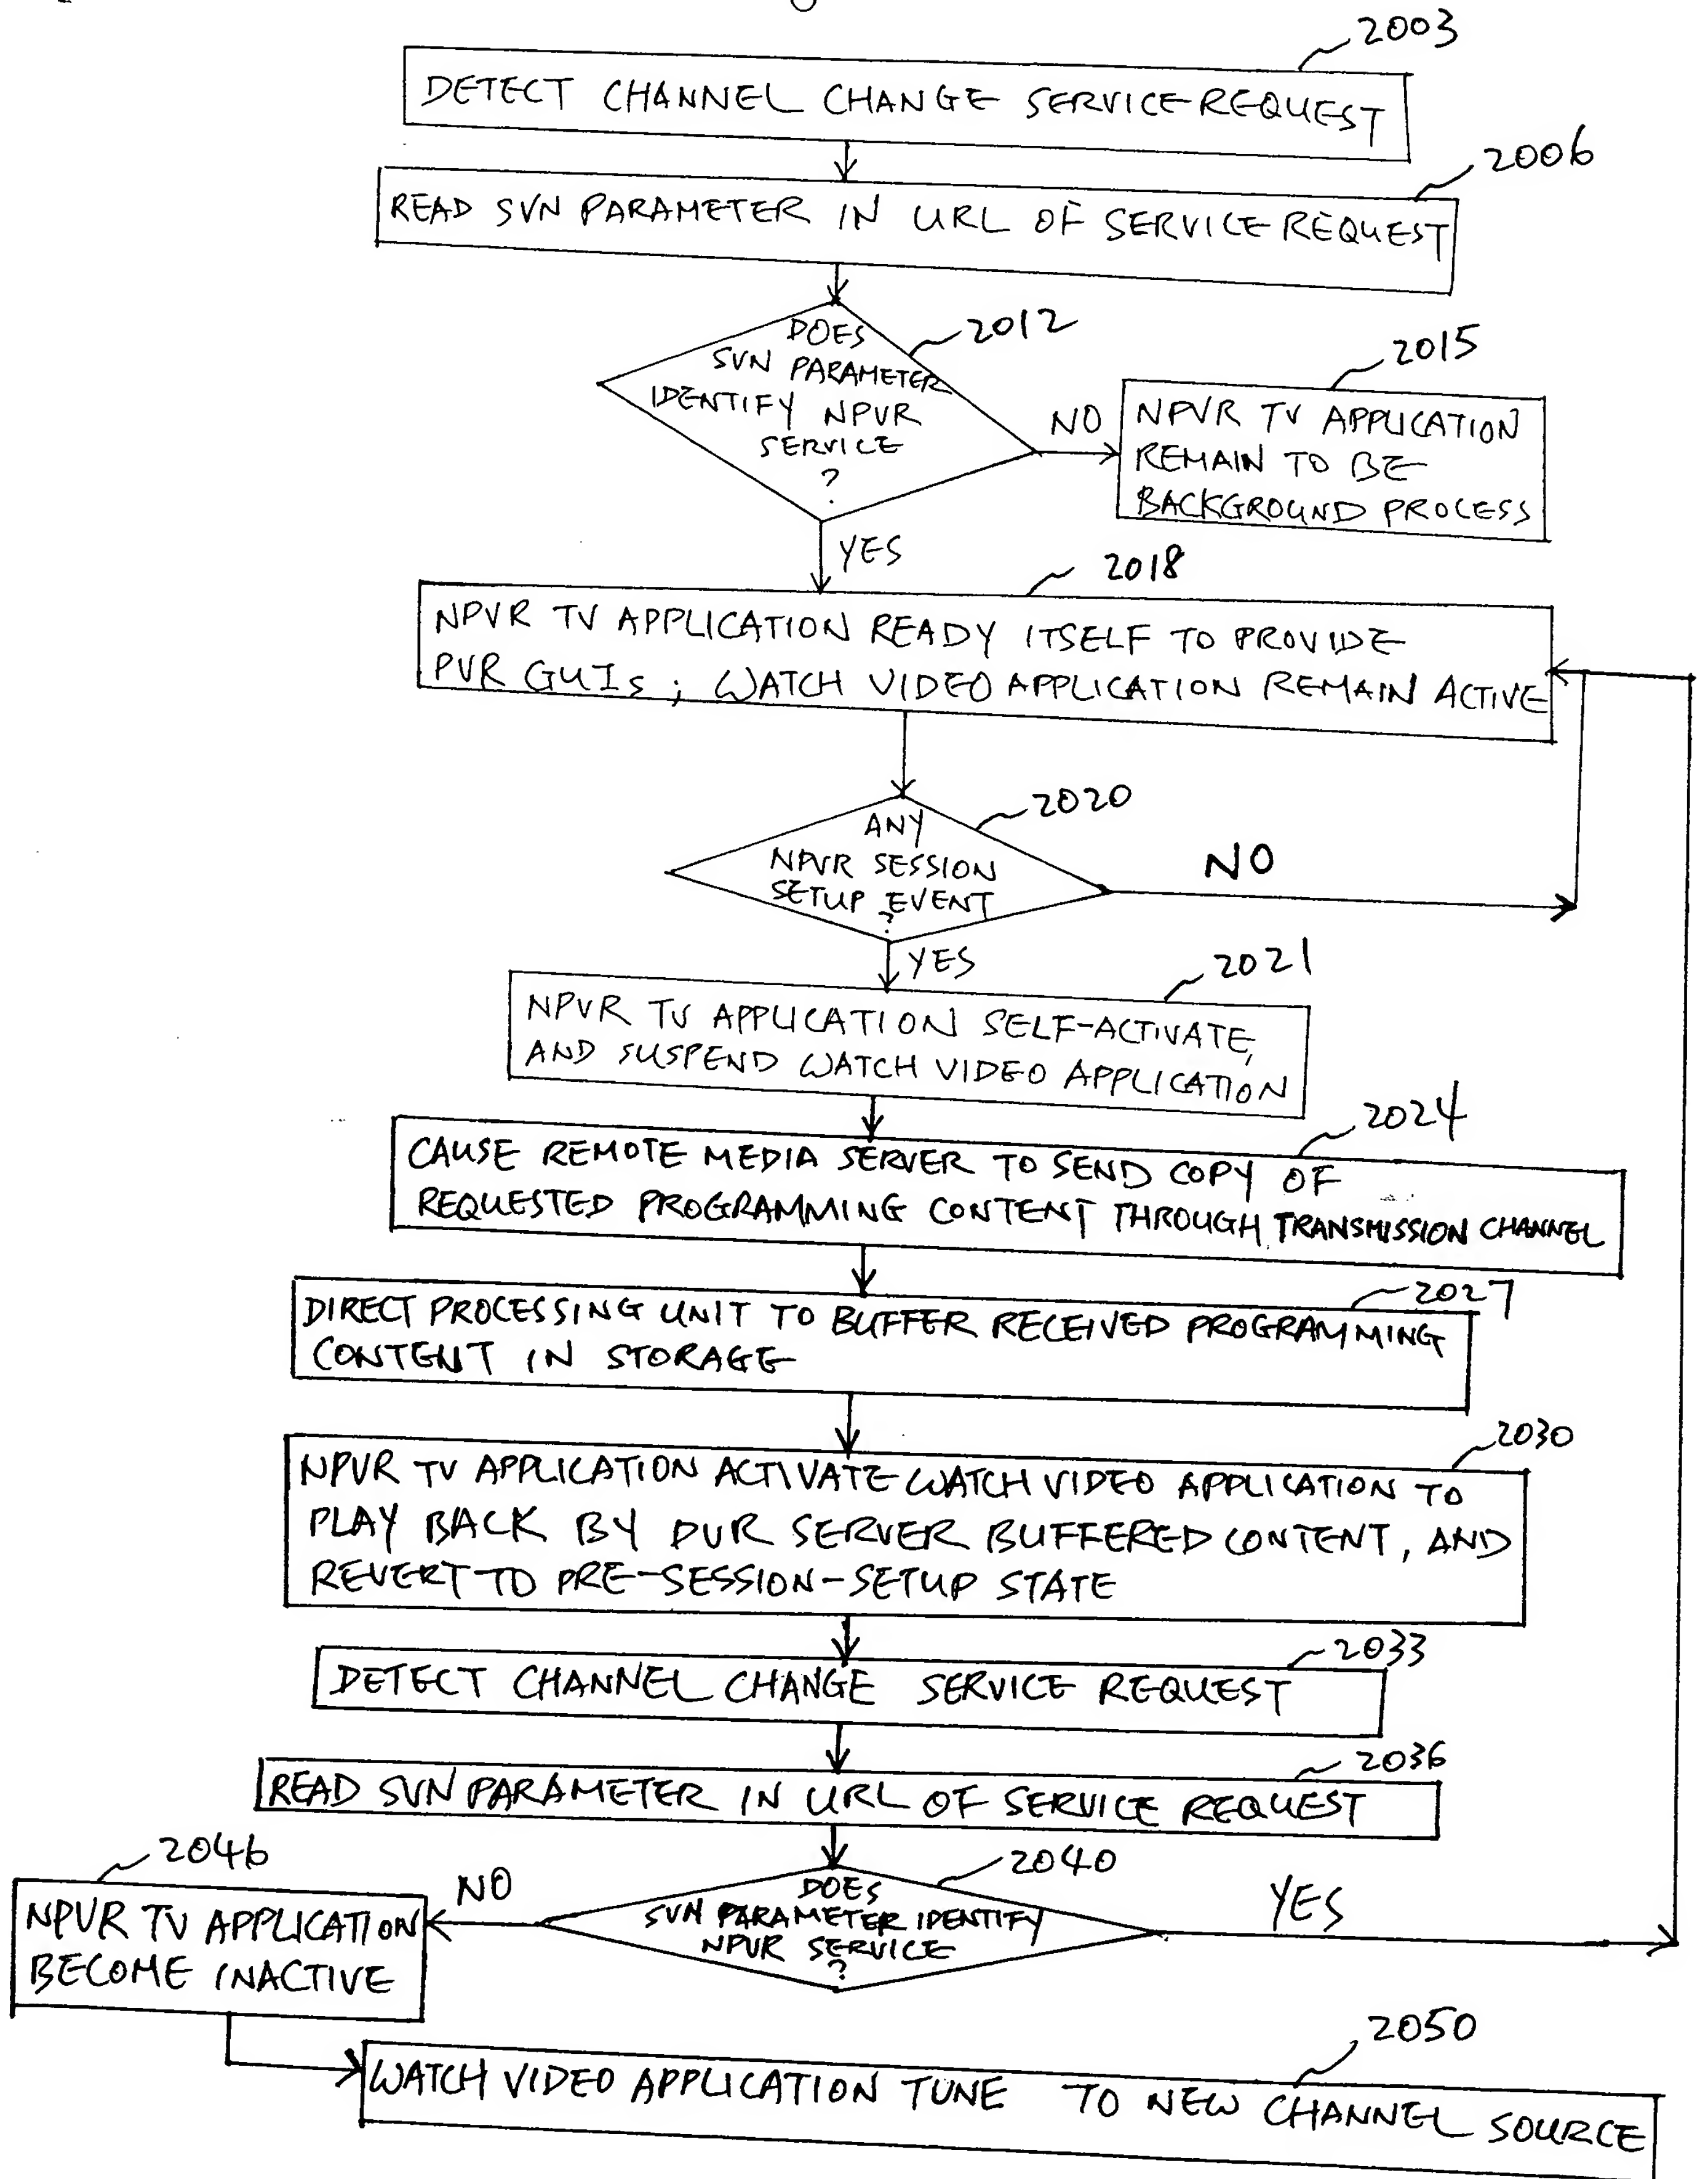 2003
DETECT CHANNEL CHANGE SERVICE REQUEST
2006
READ SVN PARAMETER IN URL OF SERVICE REQUEST
2012
DOES
SVN PARAMETER
IDENTIFY NPVR
SERVICE
?
NO
2015
NPVR TV APPLICATION
REMAIN TO BE
BACKGROUND PROCESS
YES
2018
NPVR TV APPLICATION READY ITSELF TO PROVIDE
PVR GUIs; WATCH VIDEO APPLICATION REMAIN ACTIVE
2020
ANY
NPVR SESSION
SETUP EVENT
?
NO
YES
2021
NPVR TV APPLICATION SELF-ACTIVATE,
AND SUSPEND WATCH VIDEO APPLICATION
2024
CAUSE REMOTE MEDIA SERVER TO SEND COPY OF
REQUESTED PROGRAMMING CONTENT THROUGH TRANSMISSION CHANNEL
2027
DIRECT PROCESSING UNIT TO BUFFER RECEIVED PROGRAMMING
CONTENT IN STORAGE
2030
NPVR TV APPLICATION ACTIVATE WATCH VIDEO APPLICATION TO
PLAY BACK BY DVR SERVER BUFFERED CONTENT, AND
REVERT TO PRE-SESSION-SETUP STATE
2033
DETECT CHANNEL CHANGE SERVICE REQUEST
2036
READ SVN PARAMETER IN URL OF SERVICE REQUEST
2040
DOES
SVN PARAMETER IDENTIFY
NPVR SERVICE
?
YES
NO
2046
NPVR TV APPLICATION
BECOME INACTIVE
2050
WATCH VIDEO APPLICATION TUNE TO NEW CHANNEL SOURCE